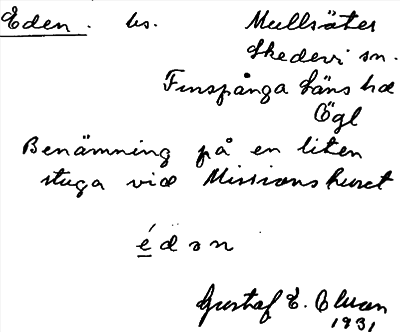 Eden. bs. Mullsäter
Skedevi sn.
Finspånga läns hd
Ögl
Benämning på en liten
stuga vid Missionshuset
é d ə n
Gustaf E. Olsson
1931